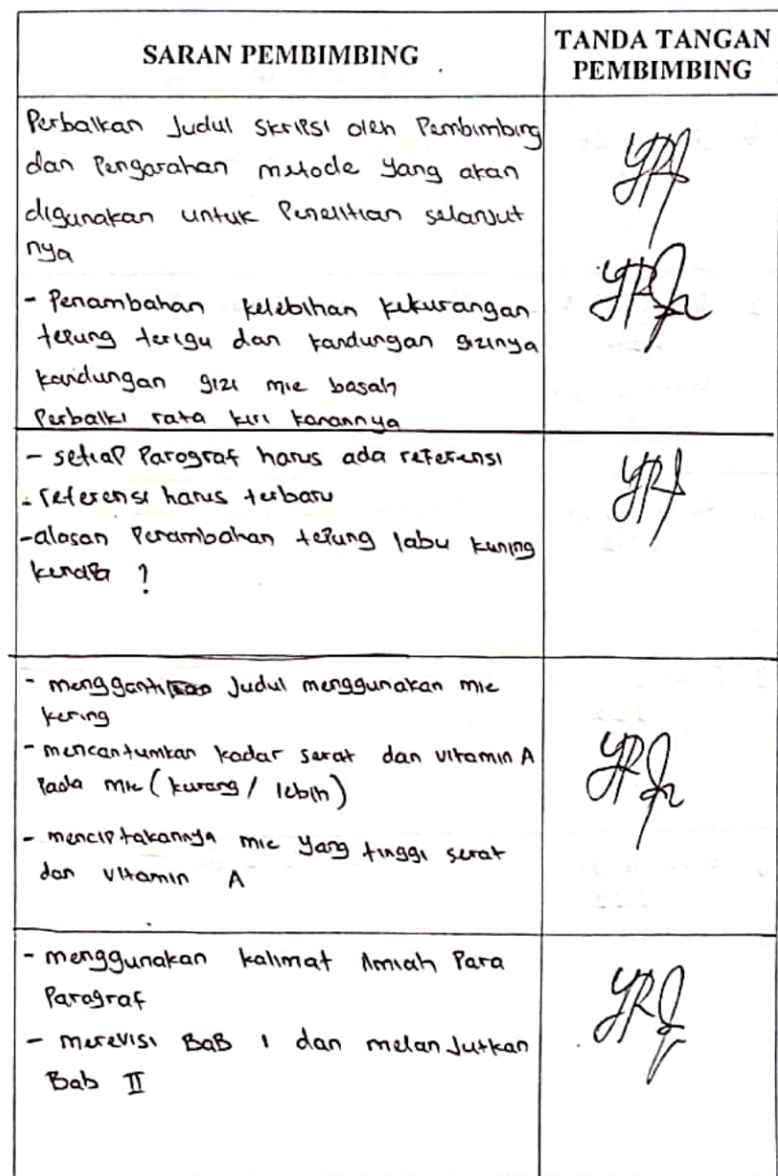 SARAN PEMBIMBING
TANDA TANGAN
PEMBIMBING
Perbaikan Judul skripsi oleh Pembimbing
dan Pengarahan metode yang akan
digunakan untuk Penelitian selanjut
nya
- Penambahan kelebihan kekurangan
tepung terigu dan kandungan gizinya
kandungan gizi mie basah
Perbaiki rata kiri kanannya
- setiap Paragraf harus ada referensi
- referensi harus terbaru
- alasan Penambahan tepung labu kuning
kenapa ?
- mengganti Judul menggunakan mie
kering
- mencantumkan kadar serat dan vitamin A
Pada mie ( kurang / lebih )
- menciptakannya mie yang tinggi serat
dan vitamin A
- menggunakan kalimat ilmiah Para
Paragraf
- merevisi BaB 1 dan melanjutkan
Bab II